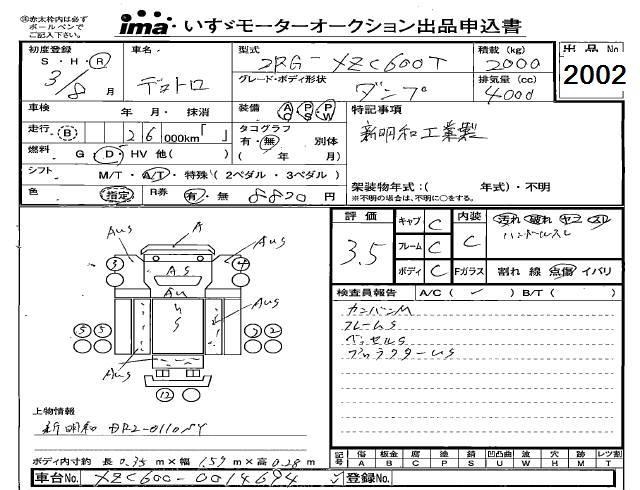 赤太枠内は必ず
ボールペンで
ご記入下さい。
ima いすゞモーターオークション出品申込書
初度登録 車名 型式 積載 (kg) 出品No
S・H・R 2RG-XZC600T 2000 2002
3/8月 デュトロ グレード・ボディ形状 ダンプ 排気量 (cc) 4000
車検 年 月・抹消 装備 AC PS PW 特記事項
走行 B 26 000km「 」 タコグラフ 有・無 別体 新明和工業製
燃料 G D・HV 他( ) ( 年 月)
シフト M/T・A/T・特殊(2ペダル・3ペダル) 架装物年式:( 年式)・不明
色 指定 R券 有・無 8820円 ※不明の場合は、不明に○をする。
評価 3.5 キャブ C 内装 C 汚れ 破れ ヤニ スリ
ハンドルスレ
フレーム C
ボディ C Fガラス 割れ 線 点傷 イバリ
検査員報告 A/C ( ✓ ) B/T ( )
カンバンM
フレームS
ベッセルS
AuS A AuS
3 AS 4
Au
S
AuS
5 5 3 2
AuS S AuS
12
上物情報
新明和 DR2-0110SY
ボディ内寸約 長 0.35 m×幅 1.59 m×高 0.28 m
記号 傷 板金 腐 塗 錆 凹凸曲 波 穴 跡 レツ割
A B C P S U W H M T
車台No. XZC600-0014694 登録No.